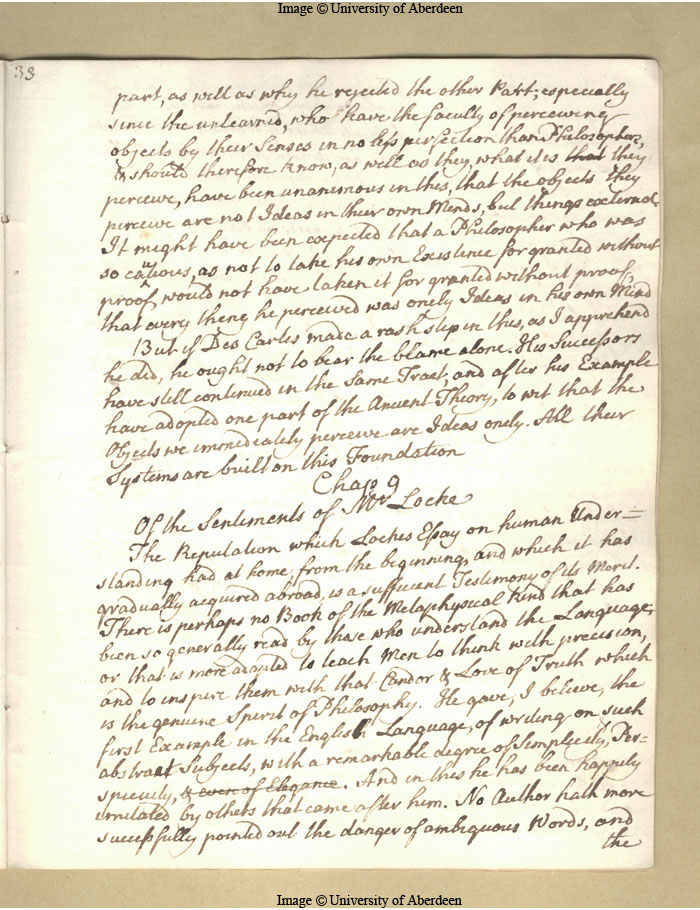 Image © University of Aberdeen
33
part, as well as why he rejected the other Part; especially
since the unlearned, who have the faculty of perceiving
objects by their Senses in no less perfection than Philosophers,
& should therefore know, as well as they, what it is that they
perceive, have been unanimous in this, that the objects they
perceive are not Ideas in their own Minds, but things external.
It might have been expected that a Philosopher who was
so cautious, as not to take his own Existence for granted without
proof, would not have taken it for granted without proof,
that every thing he perceived was onely Ideas in his own Mind
But if Des Cartes made a rash step in this, as I apprehend
he did, he ought not to bear the blame alone. His Successors
have still continued in the same Tract, and after his Example
have adopted one part of the Ancient Theory, to wit that the
Objects we immediately perceive are Ideas onely. All their
Systems are built on this Foundation
Chap 9
Of the Sentiments of Mr Locke
The Reputation which Lockes Essay on human Under=
standing had at home, from the beginning, and which it has
gradually acquired abroad, is a sufficient Testimony of its Merit.
There is perhaps no Book of the Metaphysical Kind that has
been so generally read by those who understand the Language,
or that is more adapted to teach Men to think with precision,
and to inspire them with that Candor & Love of Truth which
is the genuine Spirit of Philosophy. He gave, I believe, the
first Example in the English Language, of writing on such
abstract Subjects, with a remarkable degree of Simplicity, Per=
spicuity, & even of Elegance. And in this he has been happily
imitated by others that came after him. No Author hath more
successfully pointed out the danger of ambiguous Words, and
the
Image © University of Aberdeen